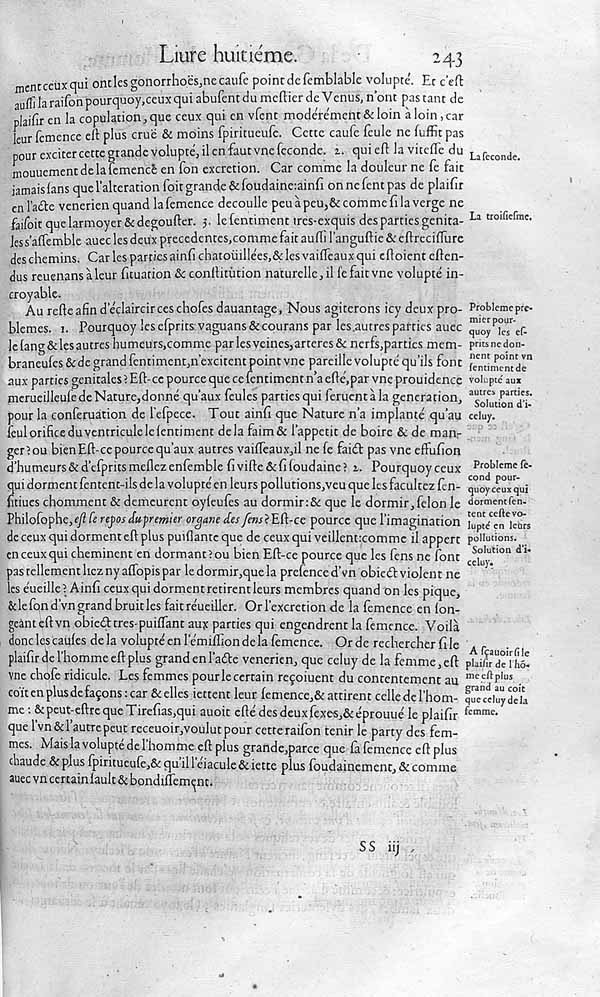 Liure huitiéme. 243
ment ceux qui ont les gonorrhoës, ne cause point de semblable volupté. Et c'est
aussi la raison pourquoy, ceux qui abusent du mestier de Venus, n'ont pas tant de
plaisir en la copulation, que ceux qui en vsent modérément & loin à loin, car
leur semence est plus cruë & moins spiritueuse. Cette cause seule ne suffit pas
pour exciter cette grande volupté, il en faut vne seconde. 2. qui est la vitesse du
La seconde.
mouuement de la semence en son excretion. Car comme la douleur ne se fait
jamais sans que l'alteration soit grande & soudaine: ainsi on ne sent pas de plaisir
en l'acte venerien quand la semence decoulle peu à peu, & comme si la verge ne
faisoit que larmoyer & degouster. 3. le sentiment tres-exquis des parties genita-
La troisiesme.
les s'assemble auec les deux precedentes, comme fait aussi l'angustie & estrecissure
des chemins. Car les parties ainsi chatoüillées, & les vaisseaux qui estoient esten-
dus reuenans à leur situation & constitution naturelle, il se fait vne volupté in-
croyable.
Au reste afin d'éclaircir ces choses dauantage, Nous agiterons icy deux pro-
blemes. 1. Pourquoy les esprits vaguans & courans par les autres parties auec
le sang & les autres humeurs, comme par les veines, arteres & nerfs, parties mem-
braneuses & de grand sentiment, n'excitent point vne pareille volupté qu'ils font
aux parties genitales? Est-ce pource que ce sentiment n'a esté, par vne prouidence
merueilleuse de Nature, donné qu'aux seules parties qui seruent à la generation,
pour la conseruation de l'espece. Tout ainsi que Nature n'a implanté qu'au
seul orifice du ventricule le sentiment de la faim & l'appetit de boire & de man-
ger? ou bien Est-ce pource qu'aux autres vaisseaux, il ne se faict pas vne effusion
d'humeurs & d'esprits meslez ensemble si viste & si soudaine? 2. Pourquoy ceux
qui dorment sentent-ils de la volupté en leurs pollutions, veu que les facultez sen-
sitiues chomment & demeurent oyseuses au dormir: & que le dormir, selon le
Philosophe, est le repos du premier organe des sens? Est-ce pource que l'imagination
de ceux qui dorment est plus puissante que de ceux qui veillent: comme il appert
en ceux qui cheminent en dormant? ou bien Est-ce pource que les sens ne sont
pas tellement liez ny assopis par le dormir, que la presence d'vn obiect violent ne
les éueille? Ainsi ceux qui dorment retirent leurs membres quand on les pique,
& le son d'vn grand bruit les fait réueiller. Or l'excretion de la semence en son-
geant est vn obiect tres-puissant aux parties qui engendrent la semence. Voilà
donc les causes de la volupté en l'émission de la semence. Or de rechercher si le
plaisir de l'homme est plus grand en l'acte venerien, que celuy de la femme, est
vne chose ridicule. Les femmes pour le certain reçoiuent du contentement au
coït en plus de façons: car & elles iettent leur semence, & attirent celle de l'hom-
me: & peut-estre que Tiresias, qui auoit esté des deux sexes, & éprouué le plaisir
que l'vn & l'autre peut receuoir, voulut pour cette raison tenir le party des fem-
mes. Mais la volupté de l'homme est plus grande, parce que sa semence est plus
chaude & plus spiritueuse, & qu'il l'éiacule & iette plus soudainement, & comme
auec vn certain sault & bondissement.
Probleme pre-
mier pour-
quoy les es-
prits ne don-
nent point vn
sentiment de
volupté aux
autres parties.
Solution d'i-
celuy.
Probleme se-
cond pour-
quoy ceux qui
dorment sen-
tent ceste vo-
lupté en leurs
pollutions.
Solution d'i-
celuy.
A sçauoir si le
plaisir de l'hō-
me est plus
grand au coit
que celuy de la
femme.
SS iij